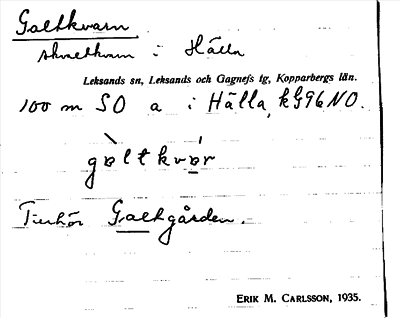 Galtkvarn
skvaltkvarn i Hälla
Leksands sn, Leksands och Gagnefs tg, Kopparbergs län.
100 m SO a i Hälla, kG96NO.
gɒltkvɒr
Tillhör Galtgården.
ERIK M. CARLSSON, 1935.